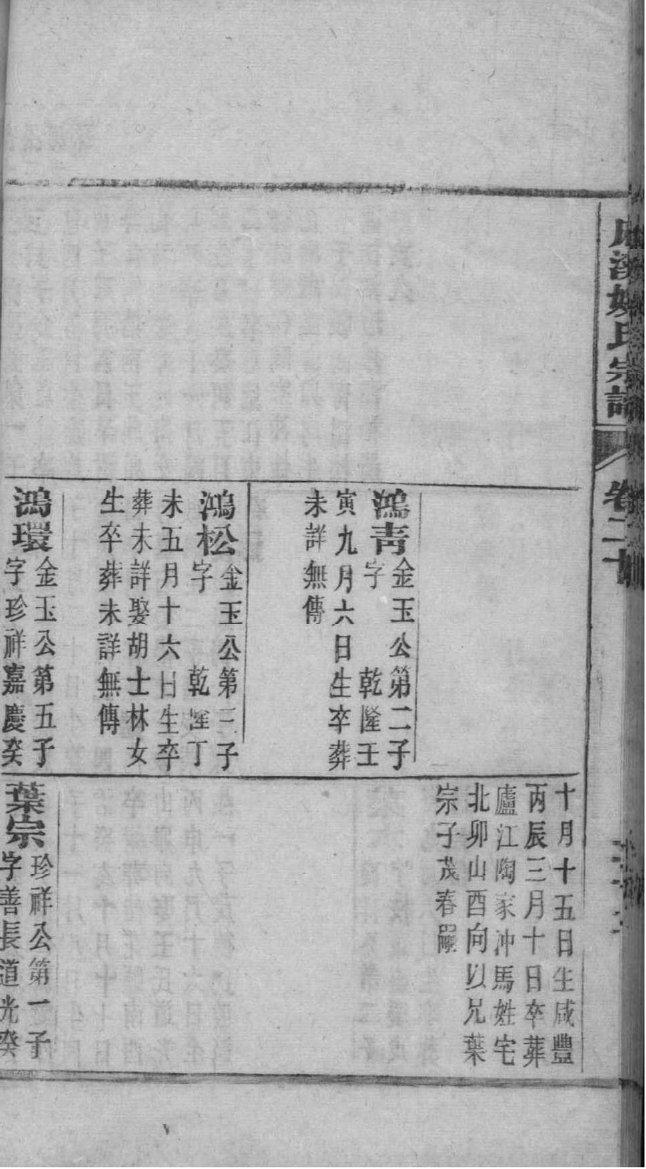 氏宗譜
卷二十
鴻青
金玉公第二子
字 乾隆壬
寅九月六日生卒葬
未詳無傳
鴻松
金玉公第三子
字 乾隆丁
未五月十六日生卒
葬未詳娶胡士林女
生卒葬未詳無傳
鴻環
金玉公第五子
字珍祥嘉慶癸
十月十五日生咸豐
丙辰三月十日卒葬
廬江陶家冲馬姓宅
北卯山酉向以兄葉
宗子茂春嗣
葉宗
珍祥公第一子
字善長道光癸